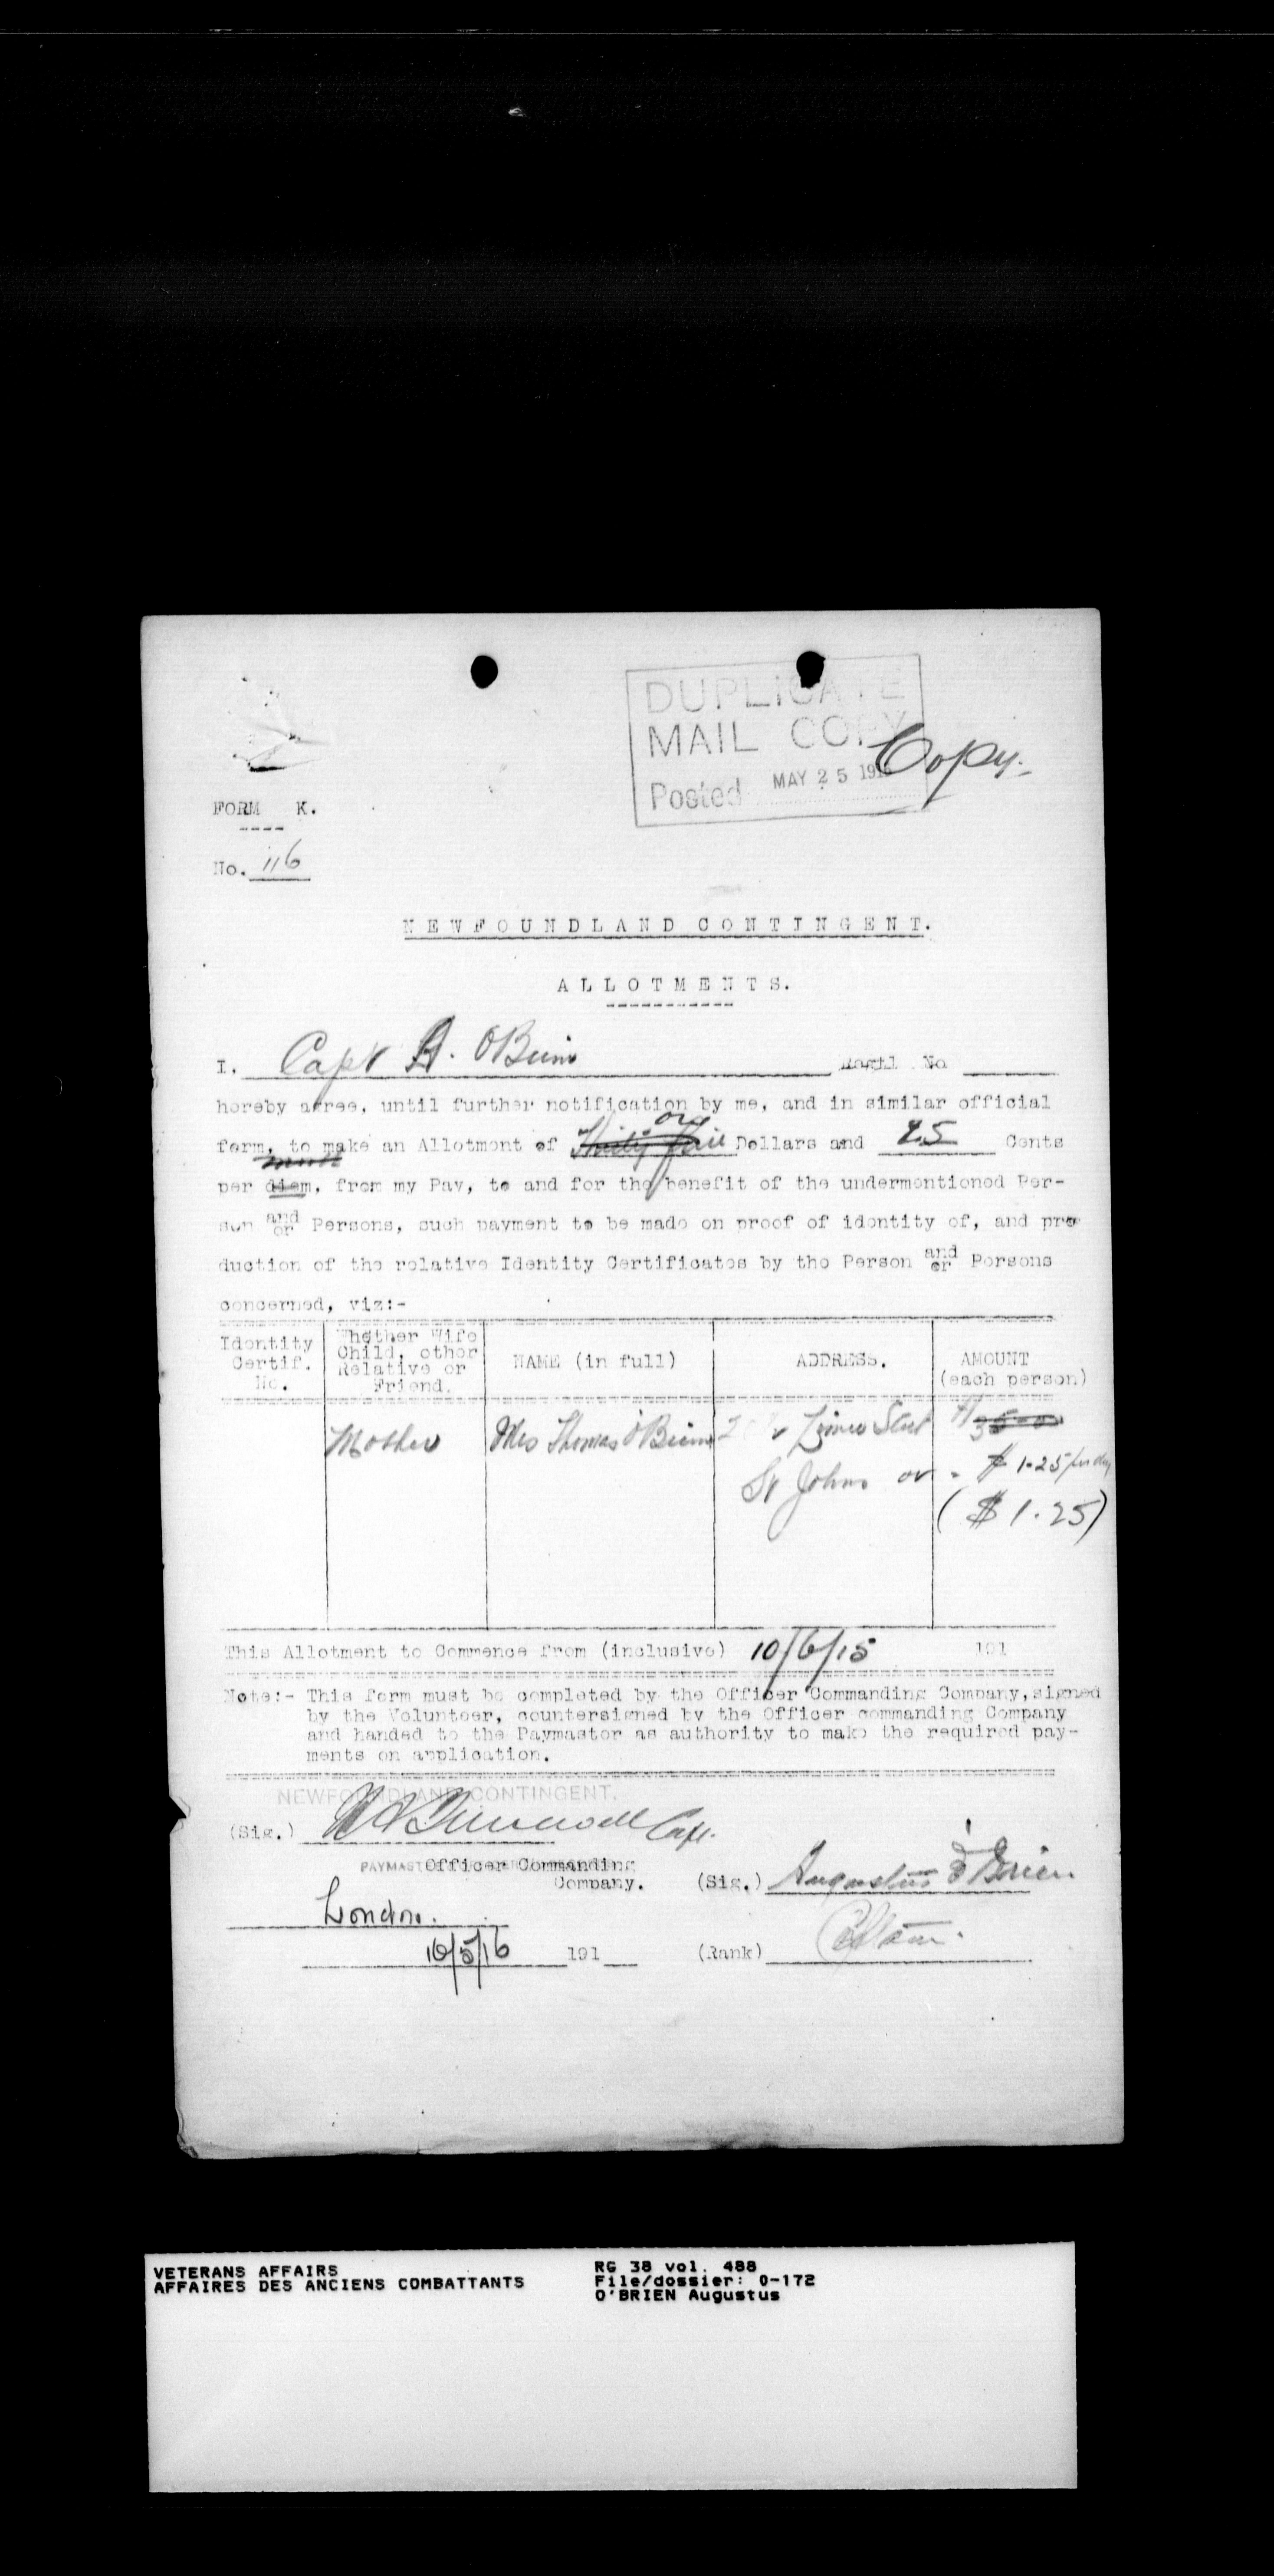 DUPLICATE
MAIL COPY
Copy.
Posted MAY 25 191
FORM K.
No. 116
NEWFOUNDLAND CONTINGENT.
ALLOTMENTS.
I, Capt A. O'Brien Regtl No
hereby agree, until further notification by me, and in similar official
one
form, to make an Allotment of Thirty Five Dollars and 25 Cents
month
per diem, from my Pay, to and for the benefit of the undermentioned Per-
son and/or Persons, such payment to be made on proof of identity of, and pro
duction of the relative Identity Certificates by the Person and/or Persons
concerned, viz:-
Identity Certif. No.
Whether Wife Child, other Relative or Friend.
NAME (in full)
ADDRESS.
AMOUNT (each person)
Mother Mrs Thomas O'Brien Street
St Johns or $ 1.25 per day
($ 1.25)
This Allotment to Commence from (inclusive) 10/6/15 191
Note:- This form must be completed by the Officer Commanding Company, signed
by the Volunteer, countersigned by the Officer commanding Company
and handed to the Paymaster as authority to make the required pay-
ments on application.
NEWFOUNDLAND CONTINGENT.
(Sig.) Capt.
Officer Commanding
Company.
(Sig.) Augustus O'Brien
London.
10/5/16 191
(Rank) Captain.
VETERANS AFFAIRS
AFFAIRES DES ANCIENS COMBATTANTS
RG 38 vol. 488
File/dossier: O-172
O'BRIEN Augustus